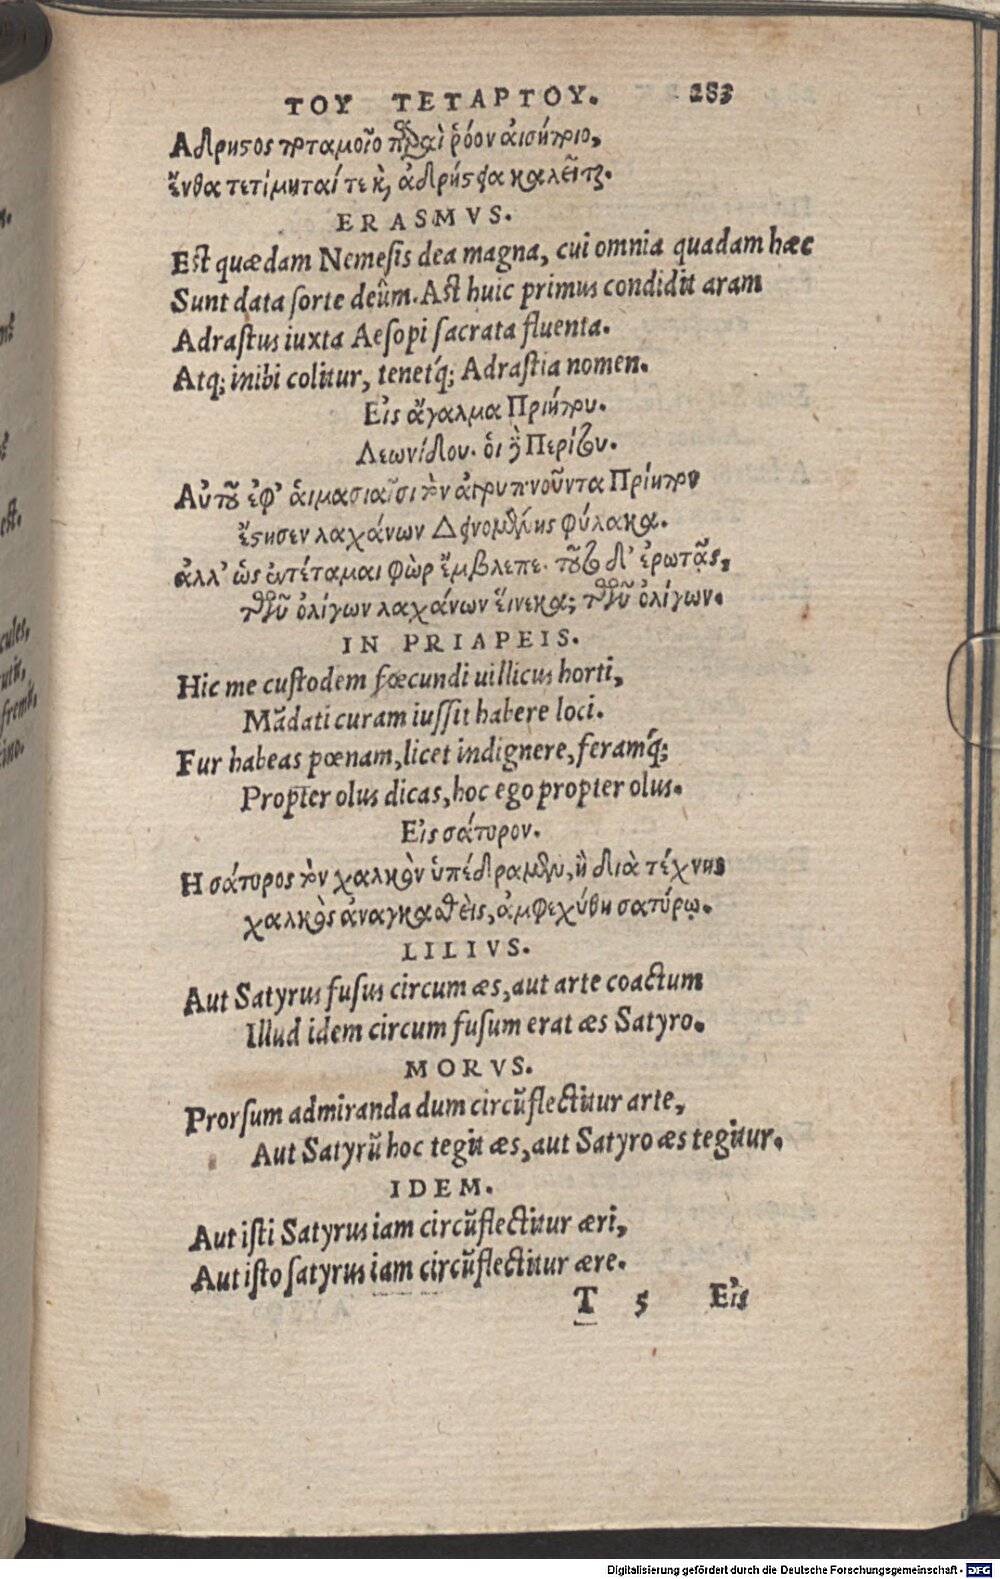 ΤΟΥ ΤΕΤΑΡΤΟΥ. 283
Αδρηστος ποταμοῖο παραὶ ῥόον αἰσήποιο,
ἔνθα τετίμηταί τε κὶ ἀδρήστεια καλεῖται.
ERASMVS.
Est quædam Nemesis dea magna, cui omnia quadam hæc
Sunt data sorte deûm. Ast huic primus condidit aram
Adrastus iuxta Aesopi sacrata fluenta.
Atq; inibi colitur, tenetq́; Adrastia nomen.
Εἰς ἄγαλμα Πριήπου.
Λεωνίδου. οἱ ἢ Περίτου.
Αὐτοῦ ἐφ' αἱμασιαῖσι τὸν ἀγρυπνοῦντα Πρίηπον
ἔστησεν λαχάνων Δεινομένης φύλακα.
ἀλλ' ὡς ἐντέταμαι φὼρ ἔμβλεπε. τοῦτο δ' ἐρωτᾷς,
τῶν ὀλίγων λαχάνων εἵνεκα; τῶν ὀλίγων.
IN PRIAPEIS.
Hic me custodem fœcundi uillicus horti,
Mãdati curam iussit habere loci.
Fur habeas pœnam, licet indignere, feramq́;
Propter olus dicas, hoc ego propter olus.
Εἰς σάτυρον.
Η σάτυρος τὸν χαλκὸν ὑπέδραμεν, ἢ διὰ τέχνης
χαλκὸς ἀναγκαθεὶς, ἀμφεχύθη σατύρῳ.
LILIVS.
Aut Satyrus fusus circum æs, aut arte coactum
Illud idem circum fusum erat æs Satyro.
MORVS.
Prorsum admiranda dum circũflectitur arte,
Aut Satyrũ hoc tegit æs, aut Satyro æs tegitur.
IDEM.
Aut isti Satyrus iam circũflectitur æri,
Aut isto satyrus iam circũflectitur ære.
T 5 Εἰς
Digitalisierung gefördert durch die Deutsche Forschungsgemeinschaft - DFG